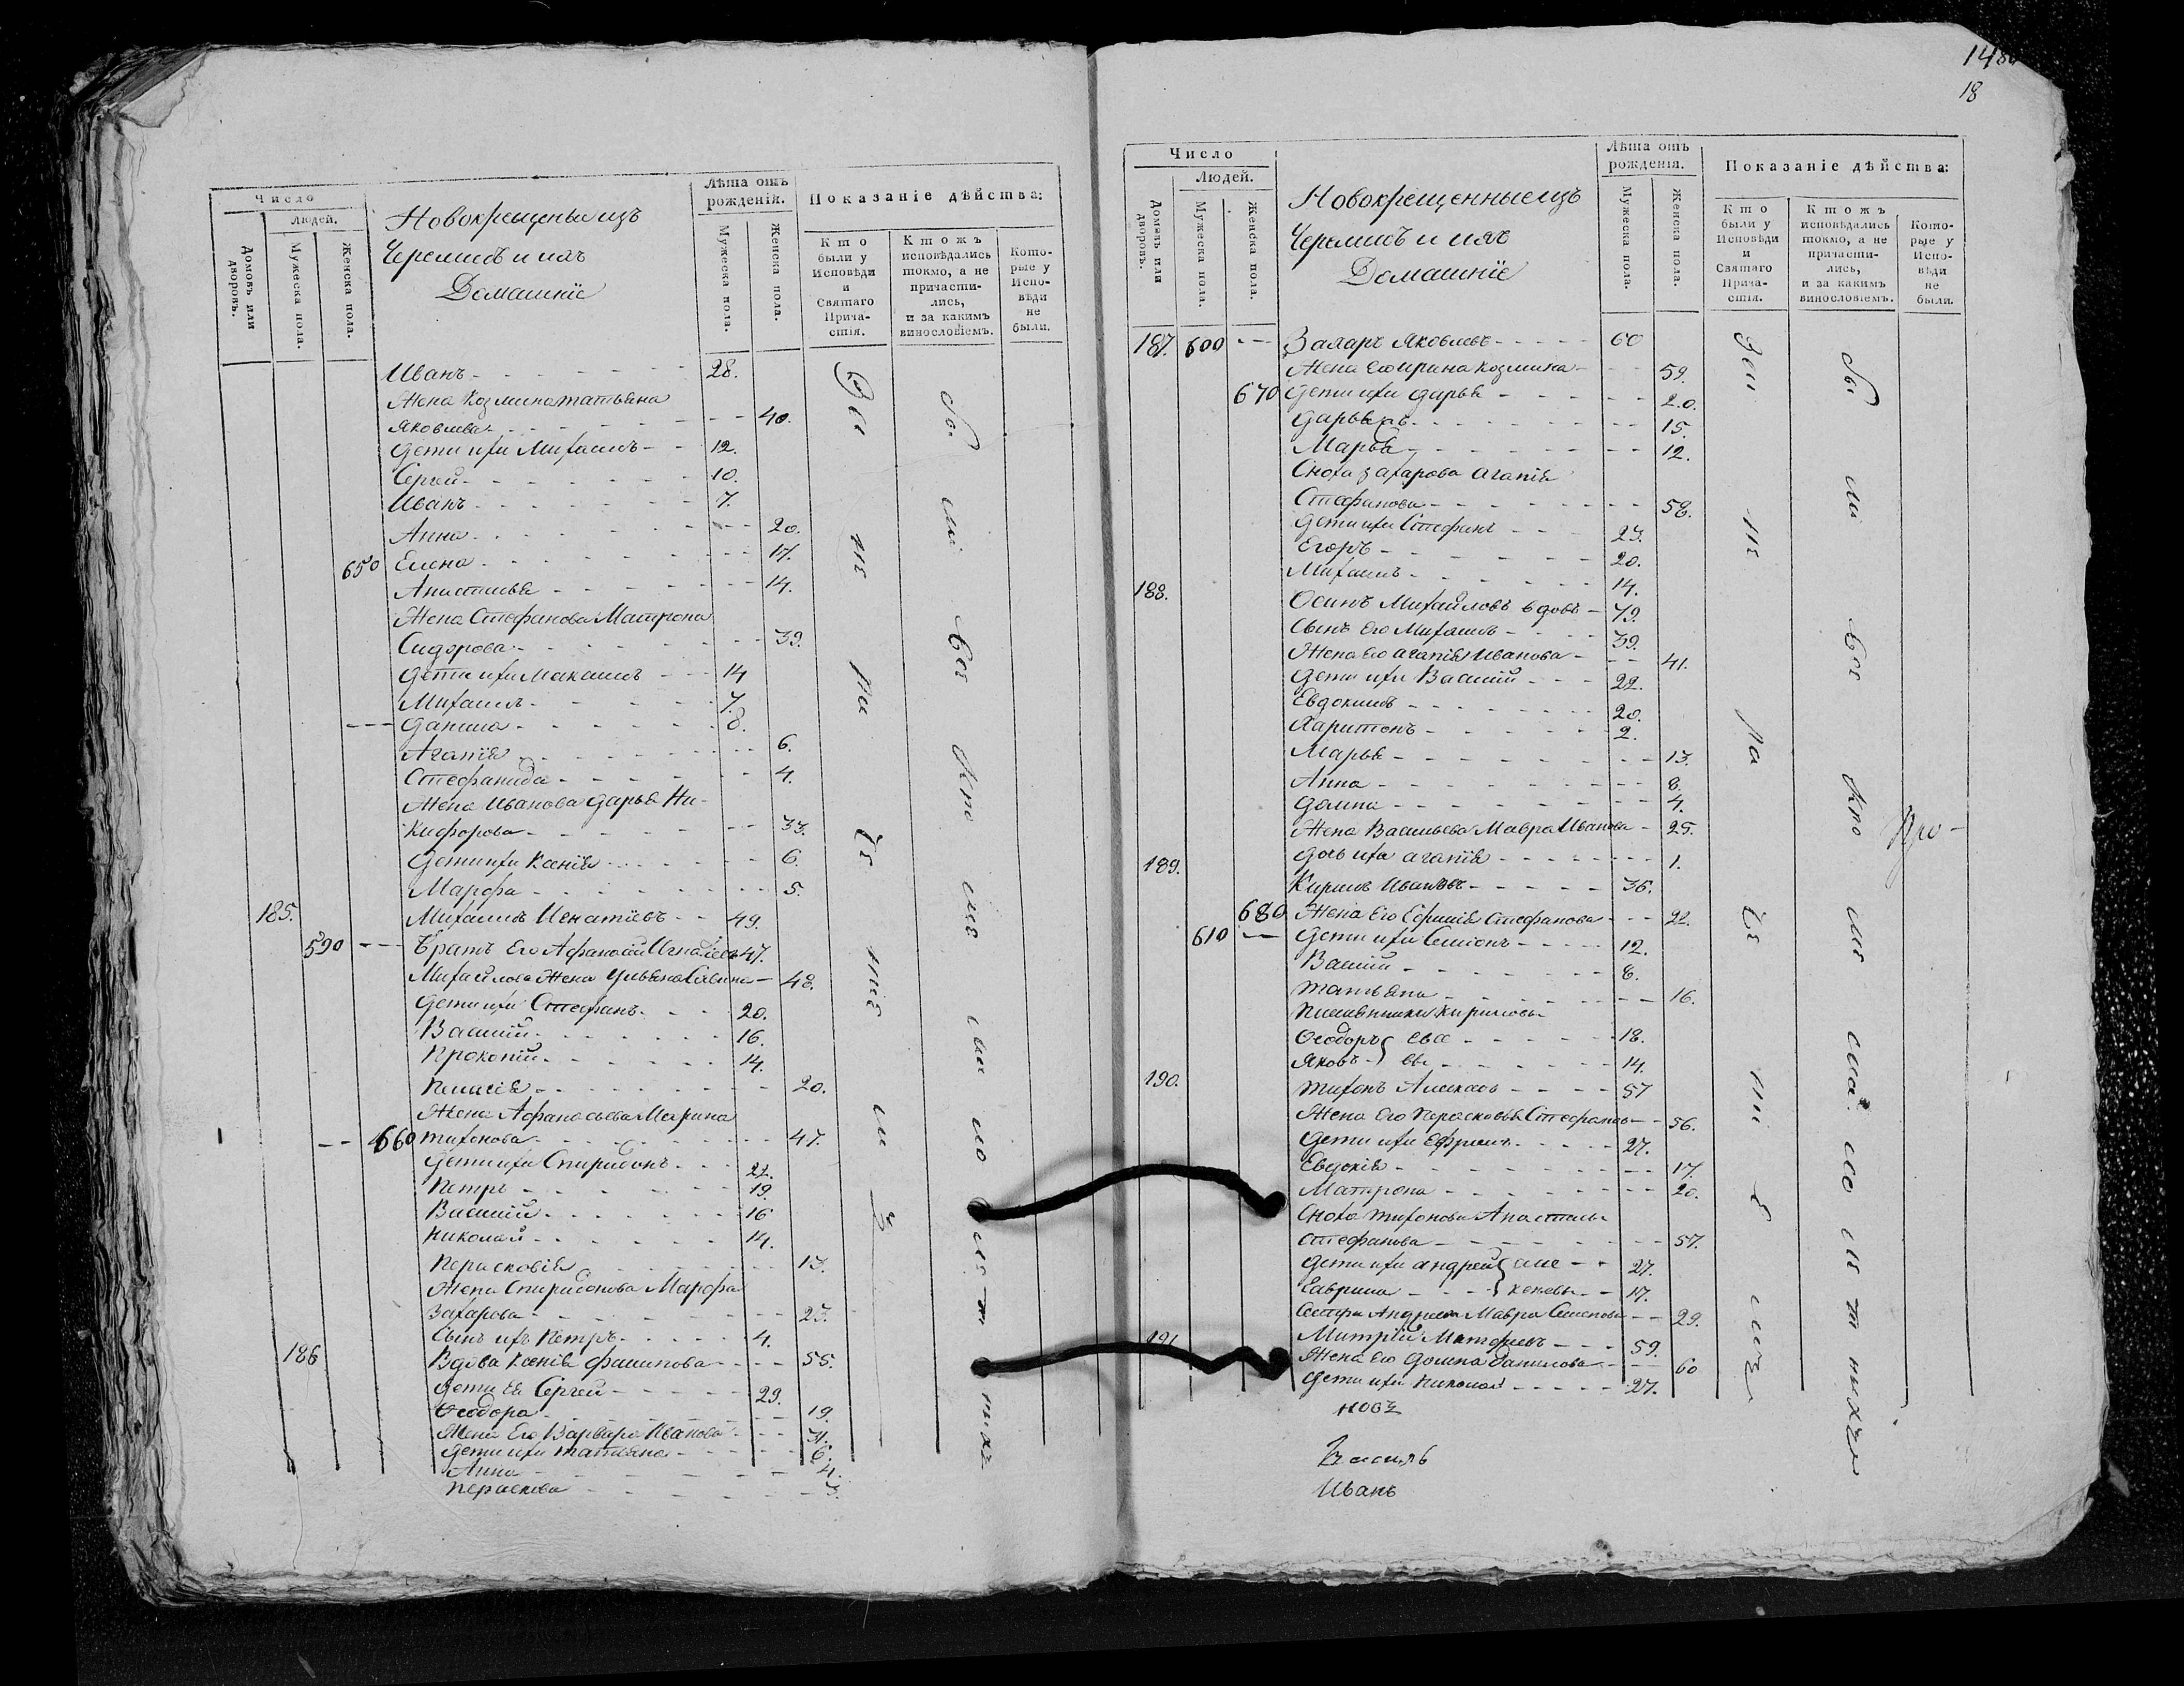 Число
Людей.
Домовъ или дворовъ.
Мужеска пола.
Женска пола.
Новокрещеныи изъ
Черемисъ и ихъ
Домашніе
Лѣта отъ рожденія.
Мужеска пола.
Женска пола.
Показаніе дѣйства:
Кто были у Исповѣди и Святаго Причастія.
Ктожъ исповѣдались токмо, а не причастились, и за какимъ винословіемъ.
Которые у Исповѣди не были.
Иванъ 28.
Жена Козмина татьяна
Яковлева 40.
дети ихъ Михаилъ 12.
Сергей 10.
Иванъ 7.
Анна 20.
650 Елена 17.
Анастасья 14.
Жена Стефанова Матрона
Сидорова 39.
дети ихъ 14
Михаилъ 7.
данила 8.
Агапія 6.
Стефанида 4.
Жена Иванова дарья Ни-
кифорова 33.
дети ихъ Ксенія 6.
Марфа 5.
185. Михаилъ Игнатіевъ 49.
590 Братъ Его Афанасій Игнатіевъ 47.
Михайлова Жена Ульяна 48.
дети ихъ Стефанъ 20.
Василій 16.
Прокопій 14.
Пелагія 20.
Жена Афанасьева Марина
660 тихонова 47.
дети ихъ Спиридонъ 22.
Петръ 19.
Василій 16
Николай 14.
Парасковія 13.
Жена Спиридонова Марфа
Захарова 23.
Сынъ ихъ Петръ 4.
186 Вдова Ксенія филипова 55.
дети Ея Сергей 29.
Феодора 19.
Жена Его Варвара Иванова 31.
дети ихъ татіяна 6.
Анна 4.
Параскева 3.
148
18
Число
Людей.
Домовъ или дворовъ.
Мужеска пола.
Женска пола.
Новокрещенные изъ
Черемисъ и ихъ
Домашніе
Лѣта отъ рожденія.
Мужеска пола.
Женска пола.
Показаніе дѣйства:
Кто были у Исповѣди и Святаго Причастія.
Ктожъ исповѣдались токмо, а не причастились, и за какимъ винословіемъ.
Которые у Исповѣди не были.
187. 600 Захаръ Яковлевъ 60
Жена Его ирина козмина 59.
670 дети ихъ дарья 20.
дарья 15.
Марья 12.
Сноха захарова агапія
Стефанова 58.
дети ихъ Стефанъ 23.
Егоръ 20.
Михаилъ 14.
188. Осипъ Михайловъ вдовъ 79.
Сынъ Его Михаилъ 39.
Жена Его агапія Иванова 41.
дети ихъ Василій 22.
Евдокимъ 20.
Харитонъ 2.
Марья 13.
Анна 8.
домна 4.
Жена Васильева Мавра Иванова 25.
дочь ихъ агапія 1.
189. Кирилъ Ивановъ 36.
680 Жена Его Стефанова 22.
610 дети ихъ Семіонъ 12.
Василій 8.
татьяна 16.
Кириловы
Феодоръ 18.
Яковъ 14.
190. тихонъ Алексеевъ 57
Жена Его Парасковья Стефанова 56.
дети ихъ Ефремъ 27.
Евдокія 17.
Матрона 20.
Сноха тихонова Анастасья
стефанова 57.
дети ихъ андрей 27.
Гаврила 17.
Сестра Андреева Мавра Семенова 29.
191. Митрій Матфеевъ 59.
Жена Его домна данилова 60
дети ихъ Николай 27.
Василь
Иванъ